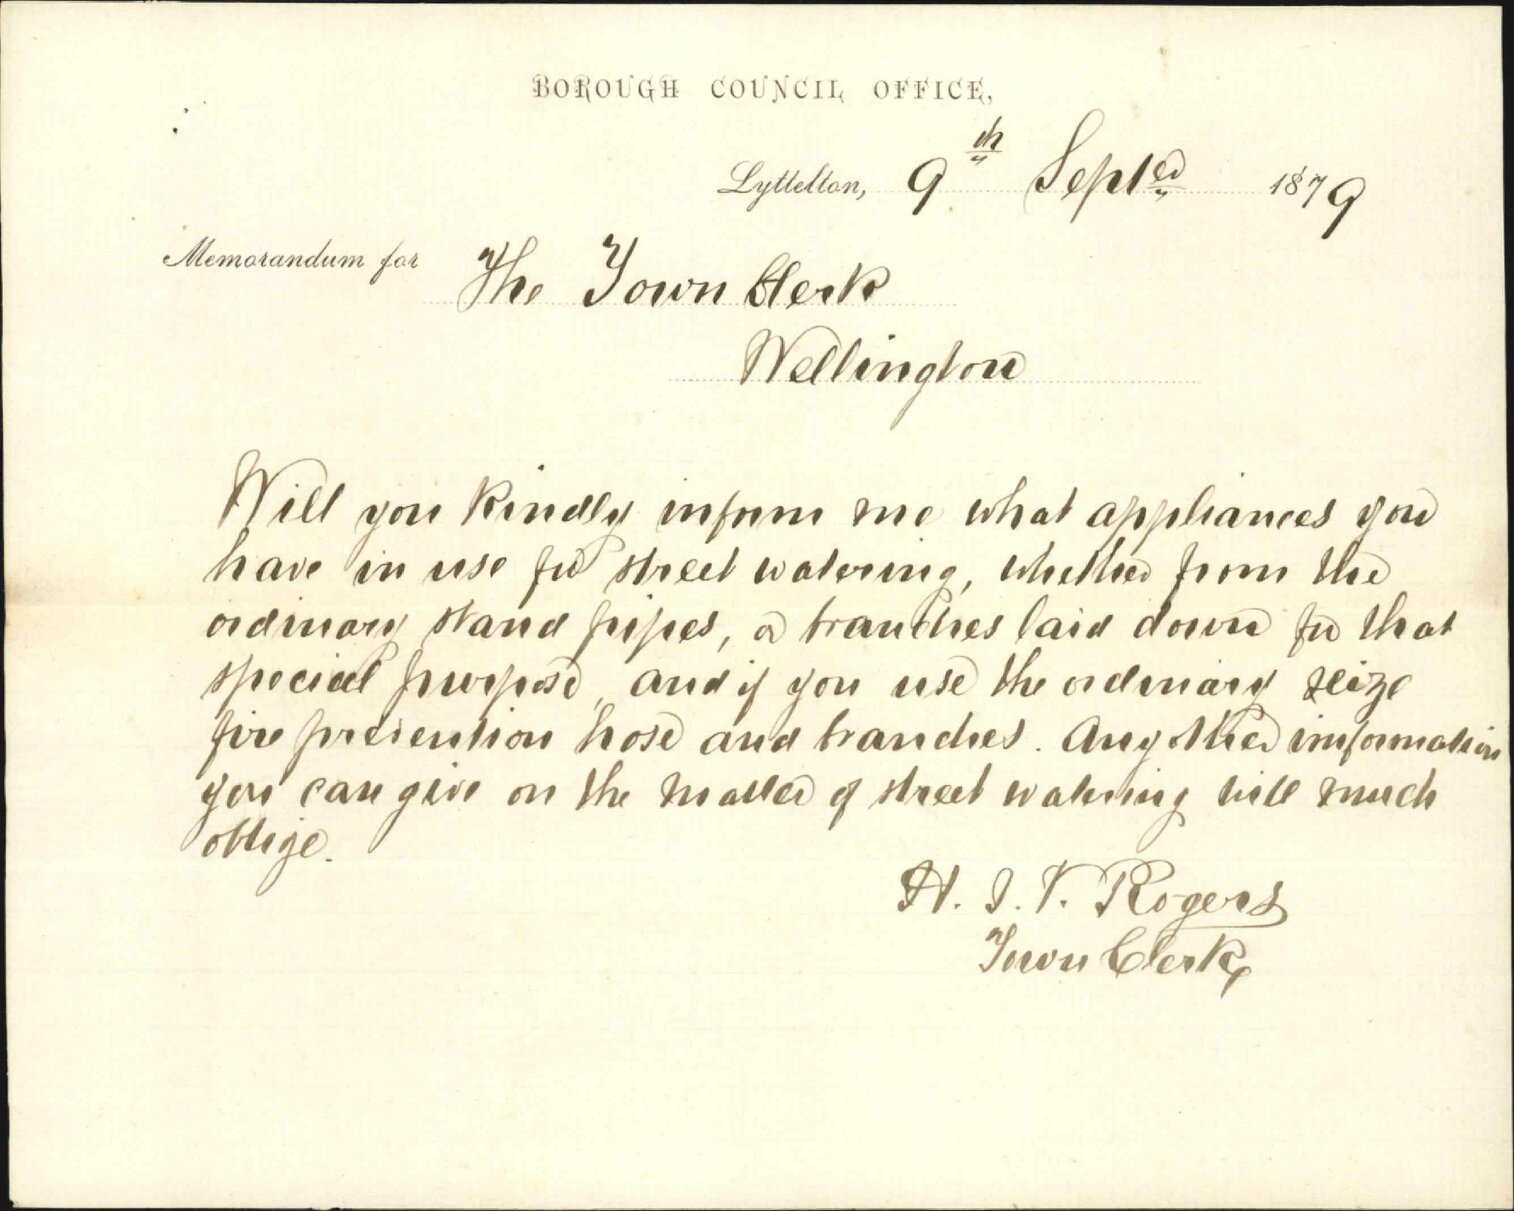 BOROUGH COUNCIL OFFICE,
Lyttelton, 9th Septer 1879
Memorandum for The Town Clerk
Wellington
Will you kindly inform me what appliances you
have in use for street watering, whether from the
ordinary stand pipes, or branches laid down for that
special purpose, and if you use the ordinary seize
fire prevention hose and branches. Any other information
you can give on the matter of street watering will much
oblige.
H. I. T. Rogers
Town Clerk